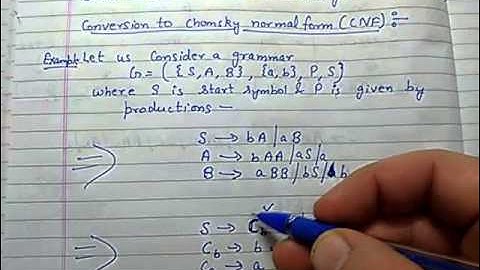 Conversion to Chomsky normal form (CNF) :-
Example: Let us Consider a grammar
G = ( {S, A, B}, {a, b}, P, S)
where S is start symbol & P is given by
productions —
S → bA | aB
⇒ A → bAA / aS / a
B → aBB / bS / b
S → C
⇒ Cb → b
Ca → a